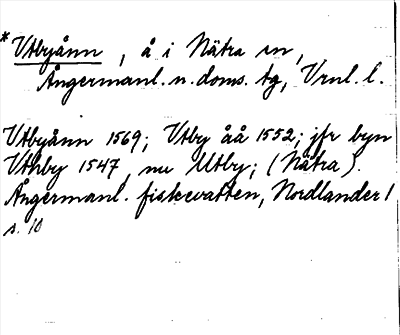 *Vtbyånn, å i Nätra sn,
Ångermanl. n. doms. tg, Vrnl. l.
Vtbyånn 1569; Vtby åå 1552; jfr byn
Vthby 1547, nu Utby; (Nätra).
Ångermanl. fiskevatten, Nordlander 1
s. 10